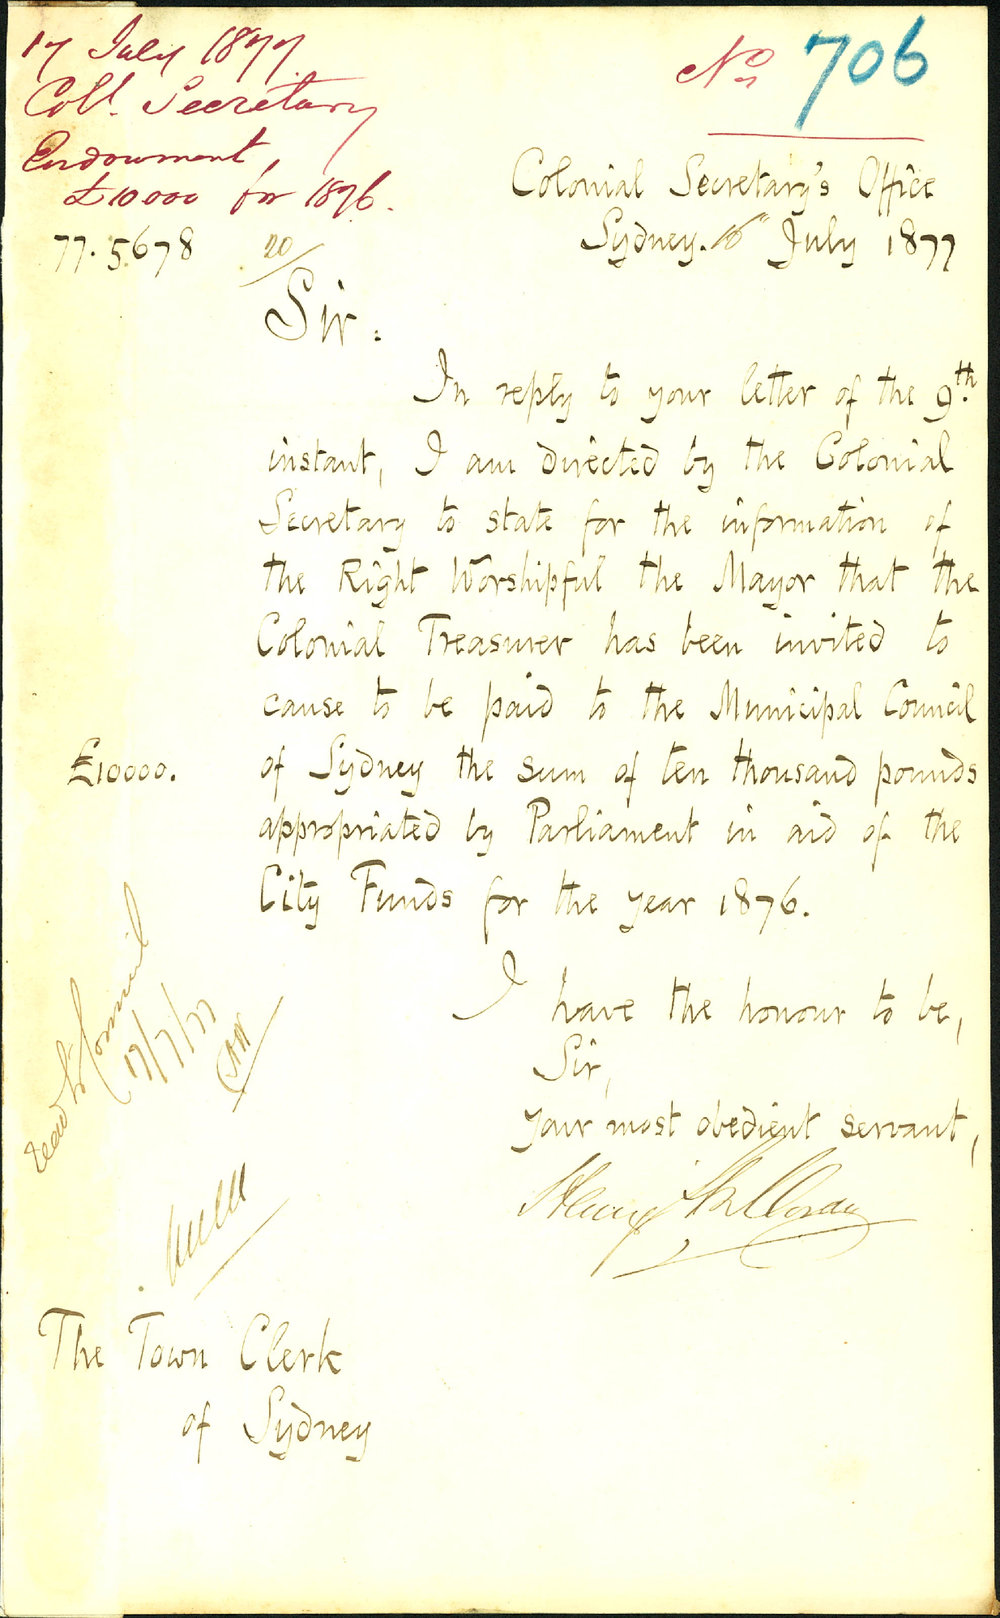 17 July 1877.
Coll. Secretary
Endowment,
£10000 for 1876.
No 706
Colonial Secretary's Office
Sydney. 16th July 1877
77. 5678
20/
Sir:
In reply to your letter of the 9th.
instant, I am directed by the Colonial
Secretary to state for the information of
the Right Worshipful the Mayor that the
Colonial Treasurer has been invited to
cause to be paid to the Municipal Council
£10000. of Sydney the sum of ten thousand pounds
appropriated by Parliament in aid of the
City Funds for the year 1876.
I have the honour to be,
Sir,
your most obedient servant,
Henry Halloran
read to Council
17/7/77
The Town Clerk
of Sydney